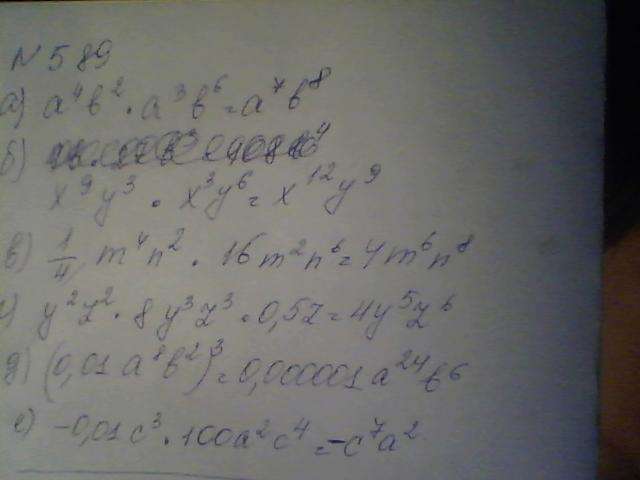 N 589
а) a⁴b² · a³b⁶ = a⁷b⁸
б)
x⁹y³ · x³y⁶ = x¹²y⁹
в) 1/4 m⁴n² · 16m²n⁶ = 4m⁶n⁸
г) y²z² · 8y³z³ · 0,5z = 4y⁵z⁶
д) (0,01 a⁸b²)³ = 0,000001a²⁴b⁶
е) -0,01c³ · 100a²c⁴ = -c⁷a²